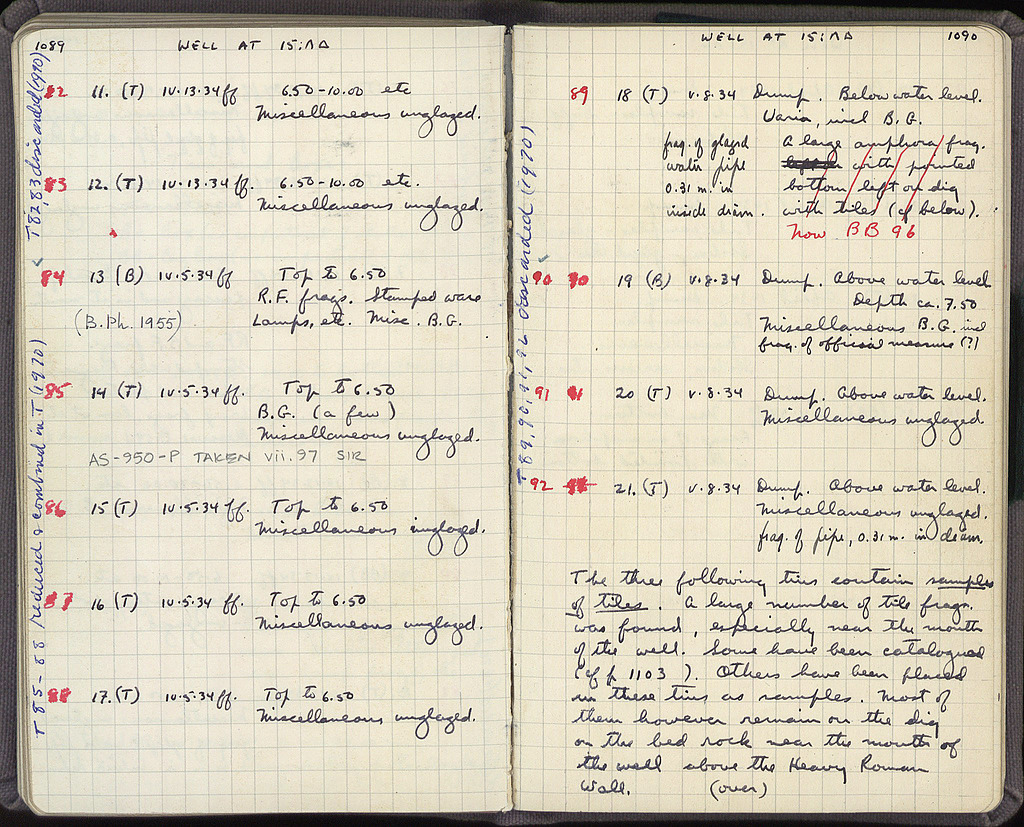 1089 WELL AT 15:ΛΔ
T 82, 83 discarded (1970)
82 11. (T) IV.13.34 ff 6.50-10.00 etc
Miscellaneous unglazed.
83 12. (T) IV.13.34 ff. 6.50-10.00 etc.
Miscellaneous unglazed.
84 13 (B) IV.5.34 ff Top to 6.50
R.F. frags. Stamped ware
(B.Ph. 1955) Lamps, etc. Misc. B.G.
T 85-88 reduced & combined in T (1970)
85 14 (T) IV.5.34 ff. Top to 6.50
B.G. (a few)
Miscellaneous unglazed.
AS-950-P TAKEN vii.97 SIR
86 15 (T) IV.5.34 ff. Top to 6.50
Miscellaneous unglazed.
87 16 (T) IV.5.34 ff. Top to 6.50
Miscellaneous unglazed.
88 17. (T) IV.5.34 ff. Top to 6.50
Miscellaneous unglazed.
WELL AT 15:ΛΔ 1090
T 89, 90, 91, 92 discarded (1970)
89 18 (T) V.8.34 Dump. Below water level.
Varia, incl B.G.
frag. of glazed
water pipe
0.31 m. in
inside diam.
A large amphora frag.
with pointed
bottom left on dig
with tiles (cf below).
Now BB 96
90 90 19 (B) V.8.34 Dump. Above water level
Depth ca. 7.50
Miscellaneous B.G. incl
frag. of official measure (?)
91 91 20 (T) V.8.34 Dump. Above water level.
Miscellaneous unglazed
92 21. (T) V.8.34 Dump. Above water level.
Miscellaneous unglazed.
frag. of pipe, 0.31 m. in diam.
The three following tins contain samples
of tiles. A large number of tile frags.
was found, especially near the mouth
of the well. Some have been catalogued
(cf p 1103 ). Others have been placed
in these tins as samples. Most of
them however remain on the dig
on the bed rock near the mouth of
the well above the Heavy Roman
Wall. (over)